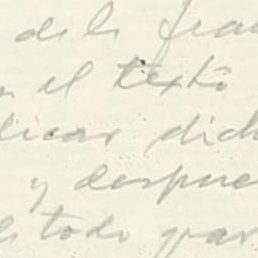 de la fra
n el texto
licar dich
y despue
de todo gar